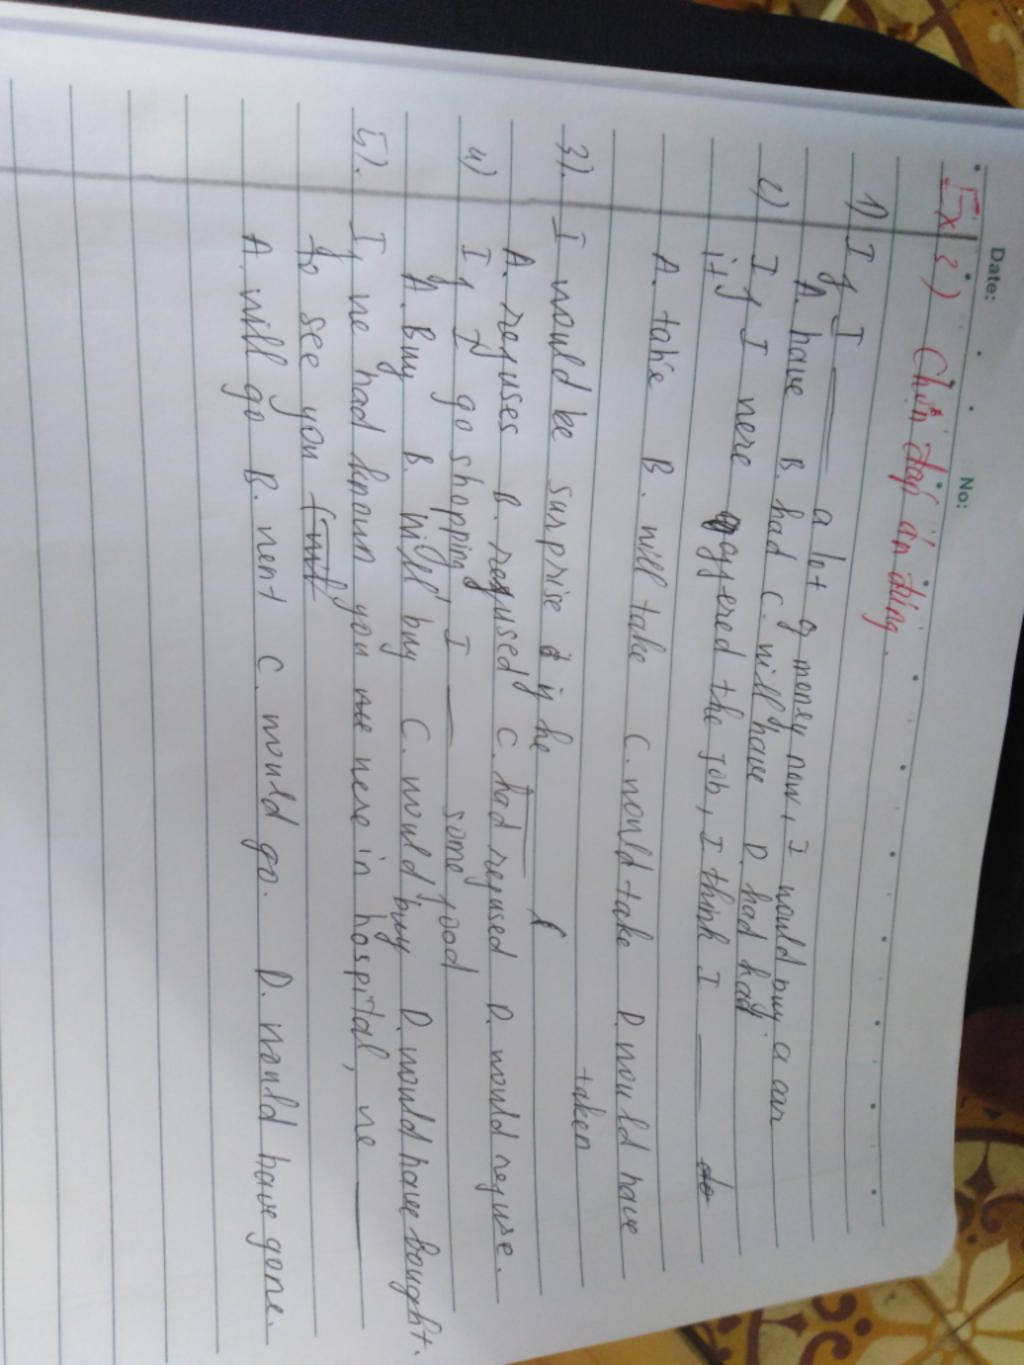 Date: No:
Ex 2) Chọn đáp án đúng.
1) If I ___ a lot of money now, I would buy a car
A. have B. had C. will have D. had had
2) If I were offered the job, I think I ___
it
A. take B. will take C. would take D. would have
taken
3). I would be surprise if he ___
A. refuses B. refused C. had refused D. would refuse.
4) If I go shopping I ___ some food
A. Buy B. Will buy C. would buy D. would have bought.
5). If we had known you were in hospital, we ___
to see you
A. will go B. went C. would go. D. would have gone.